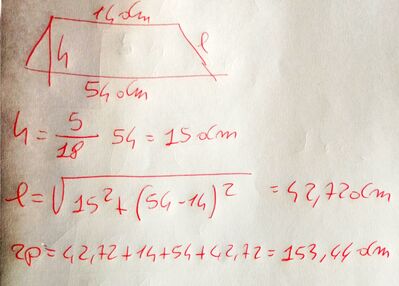 14 dm
h l
54 dm
h = 5/18 54 = 15 dm
l = √15² + (54-14)² = 42,72 dm
2p = 42,72 + 14 + 54 + 42,72 = 153,44 dm